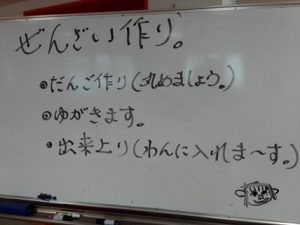 ぜんざい作り。
•だんご作り(丸めましょう。)
•ゆがきます。
•出来上り(わんに入れま〜す。)